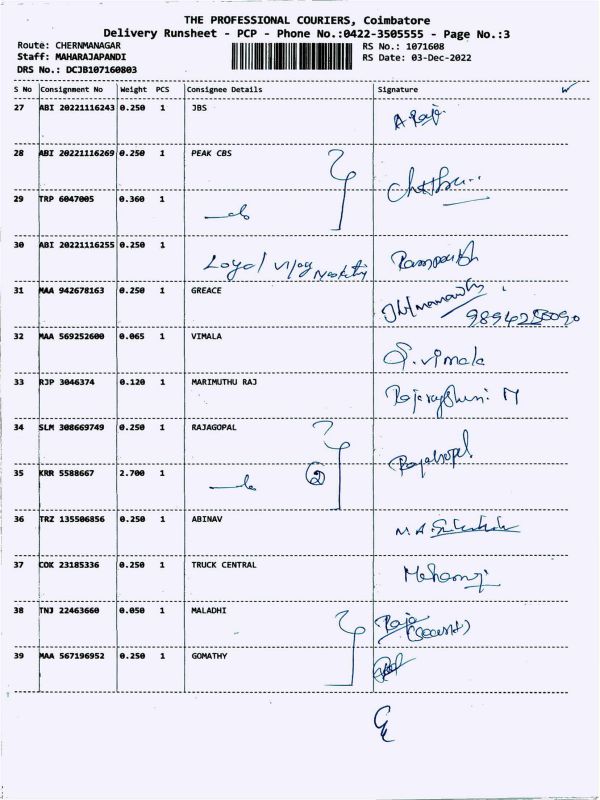 THE PROFESSIONAL COURIERS, Coimbatore
Delivery Runsheet - PCP - Phone No.:0422-3505555 - Page No.:3
Route: CHERNMANAGAR RS No.: 1071608
Staff: MAHARAJAPANDI RS Date: 03-Dec-2022
DRS No.: DCJB107160803
S No Consignment No Weight PCS Consignee Details Signature
27 ABI 20221116243 0.250 1 JBS A Raja
28 ABI 20221116269 0.250 1 PEAK CBS
29 TRP 6047005 0.360 1
30 ABI 20221116255 0.250 1 Loyal Vijay
31 MAA 942678163 0.250 1 GREACE
32 MAA 569252600 0.065 1 VIMALA S. vimala
33 RJP 3046374 0.120 1 MARIMUTHU RAJ
34 SLM 308669749 0.250 1 RAJAGOPAL Rajagopal
35 KRR 5588667 2.700 1 2
36 TRZ 135506856 0.250 1 ABINAV M.A.
37 COK 23185336 0.250 1 TRUCK CENTRAL
38 TNJ 22463660 0.050 1 MALADHI Raja
39 MAA 567196952 0.250 1 GOMATHY